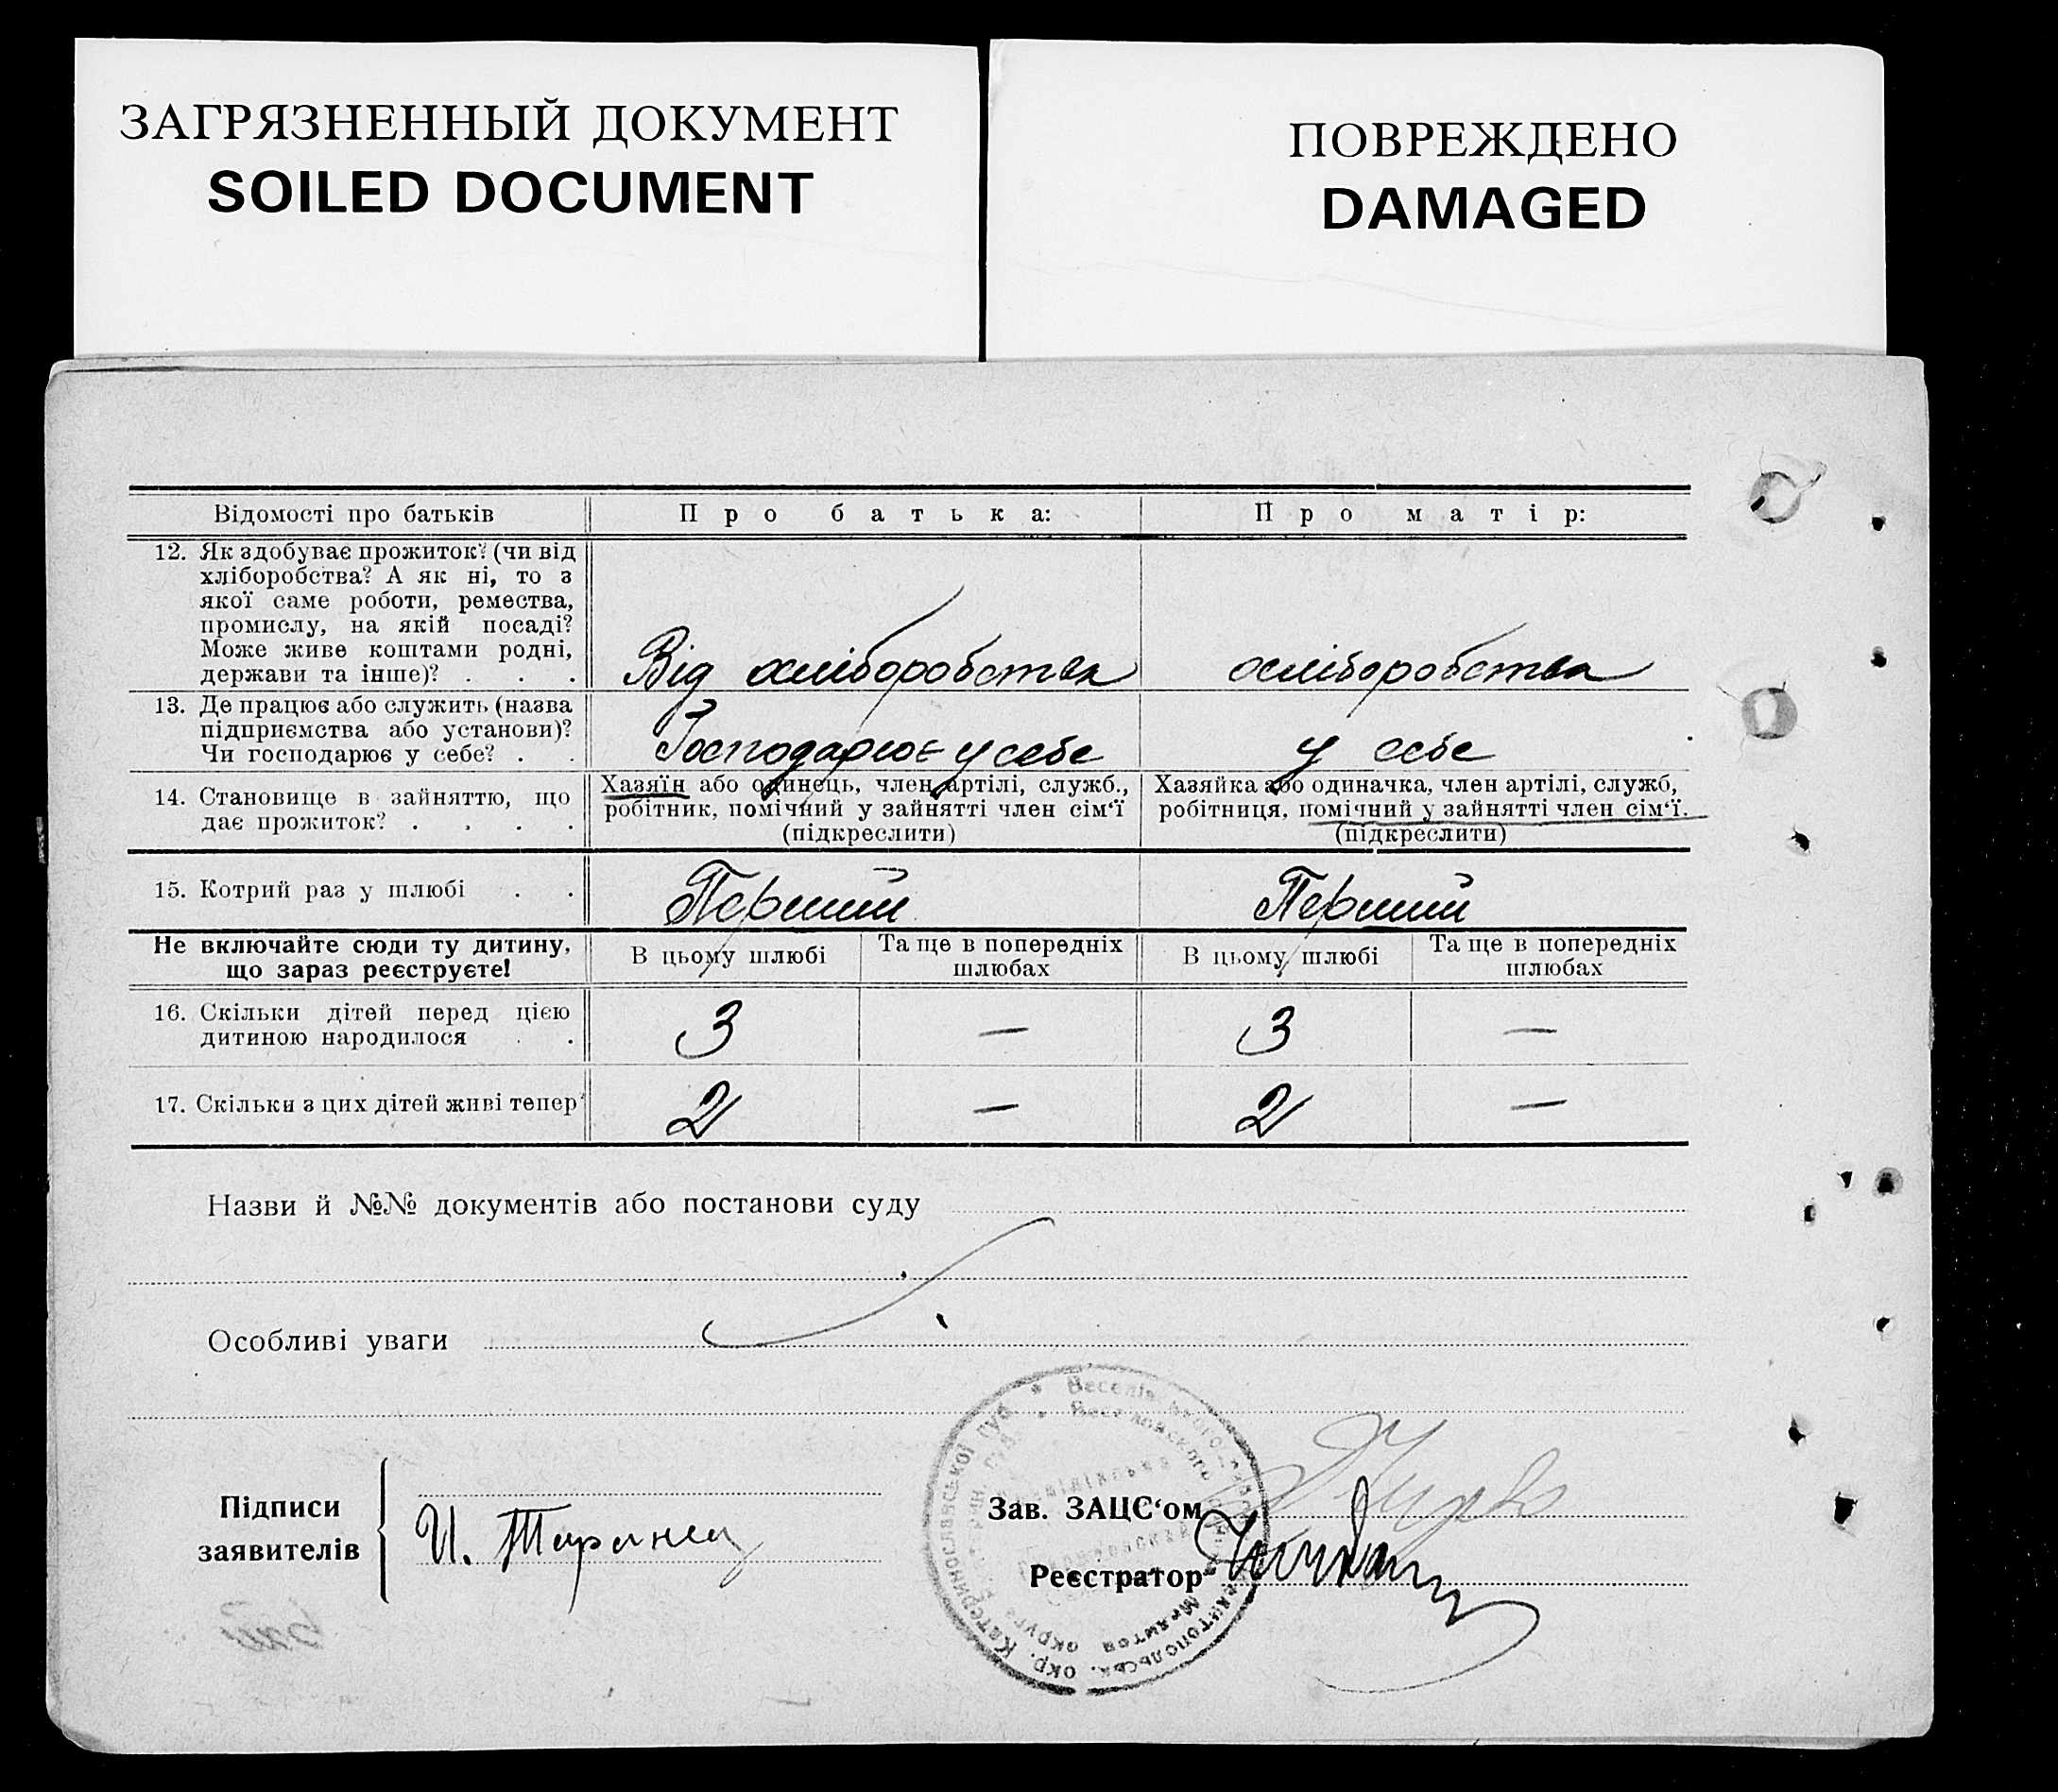 ЗАГРЯЗНЕННЫЙ ДОКУМЕНТ
SOILED DOCUMENT
ПОВРЕЖДЕНО
DAMAGED
Відомості про батьків
Про батька:
Про матір:
12. Як здобуває прожиток? (чи від
хліборобства? А як ні, то з
якої саме роботи, ремества,
промислу, на якій посаді?
Може живе коштами родні,
держави та інше)? . . .
Від хліборобства
хліборобства
13. Де працює або служить (назва
підприємства або установи)?
Чи господарює у себе? . .
Господарює у себе
у себе
14. Становище в зайняттю, що
дає прожиток? . . . .
Хазяїн або одинець, член артілі, служб.,
робітник, помічний у зайнятті член сім‘ї
(підкреслити)
Хазяйка або одиначка, член артілі, служб,
робітниця, помічний у зайнятті член сім‘ї.
(підкреслити)
15. Котрий раз у шлюбі . .
Перший
Перший
Не включайте сюди ту дитину,
що зараз реєструєте!
В цьому шлюбі
Та ще в попередніх
шлюбах
В цьому шлюбі
Та ще в попередніх
шлюбах
16. Скільки дітей перед цією
дитиною народилося . .
3
—
3
—
17. Скільки з цих дітей живі тепер
2
—
2
—
Назви й №№ документів або постанови суду
Особливі уваги
Підписи
заявителів
И. Таранец
Зав. ЗАЦС‘ом
Реєстратор
окр. Катеринославської губ.